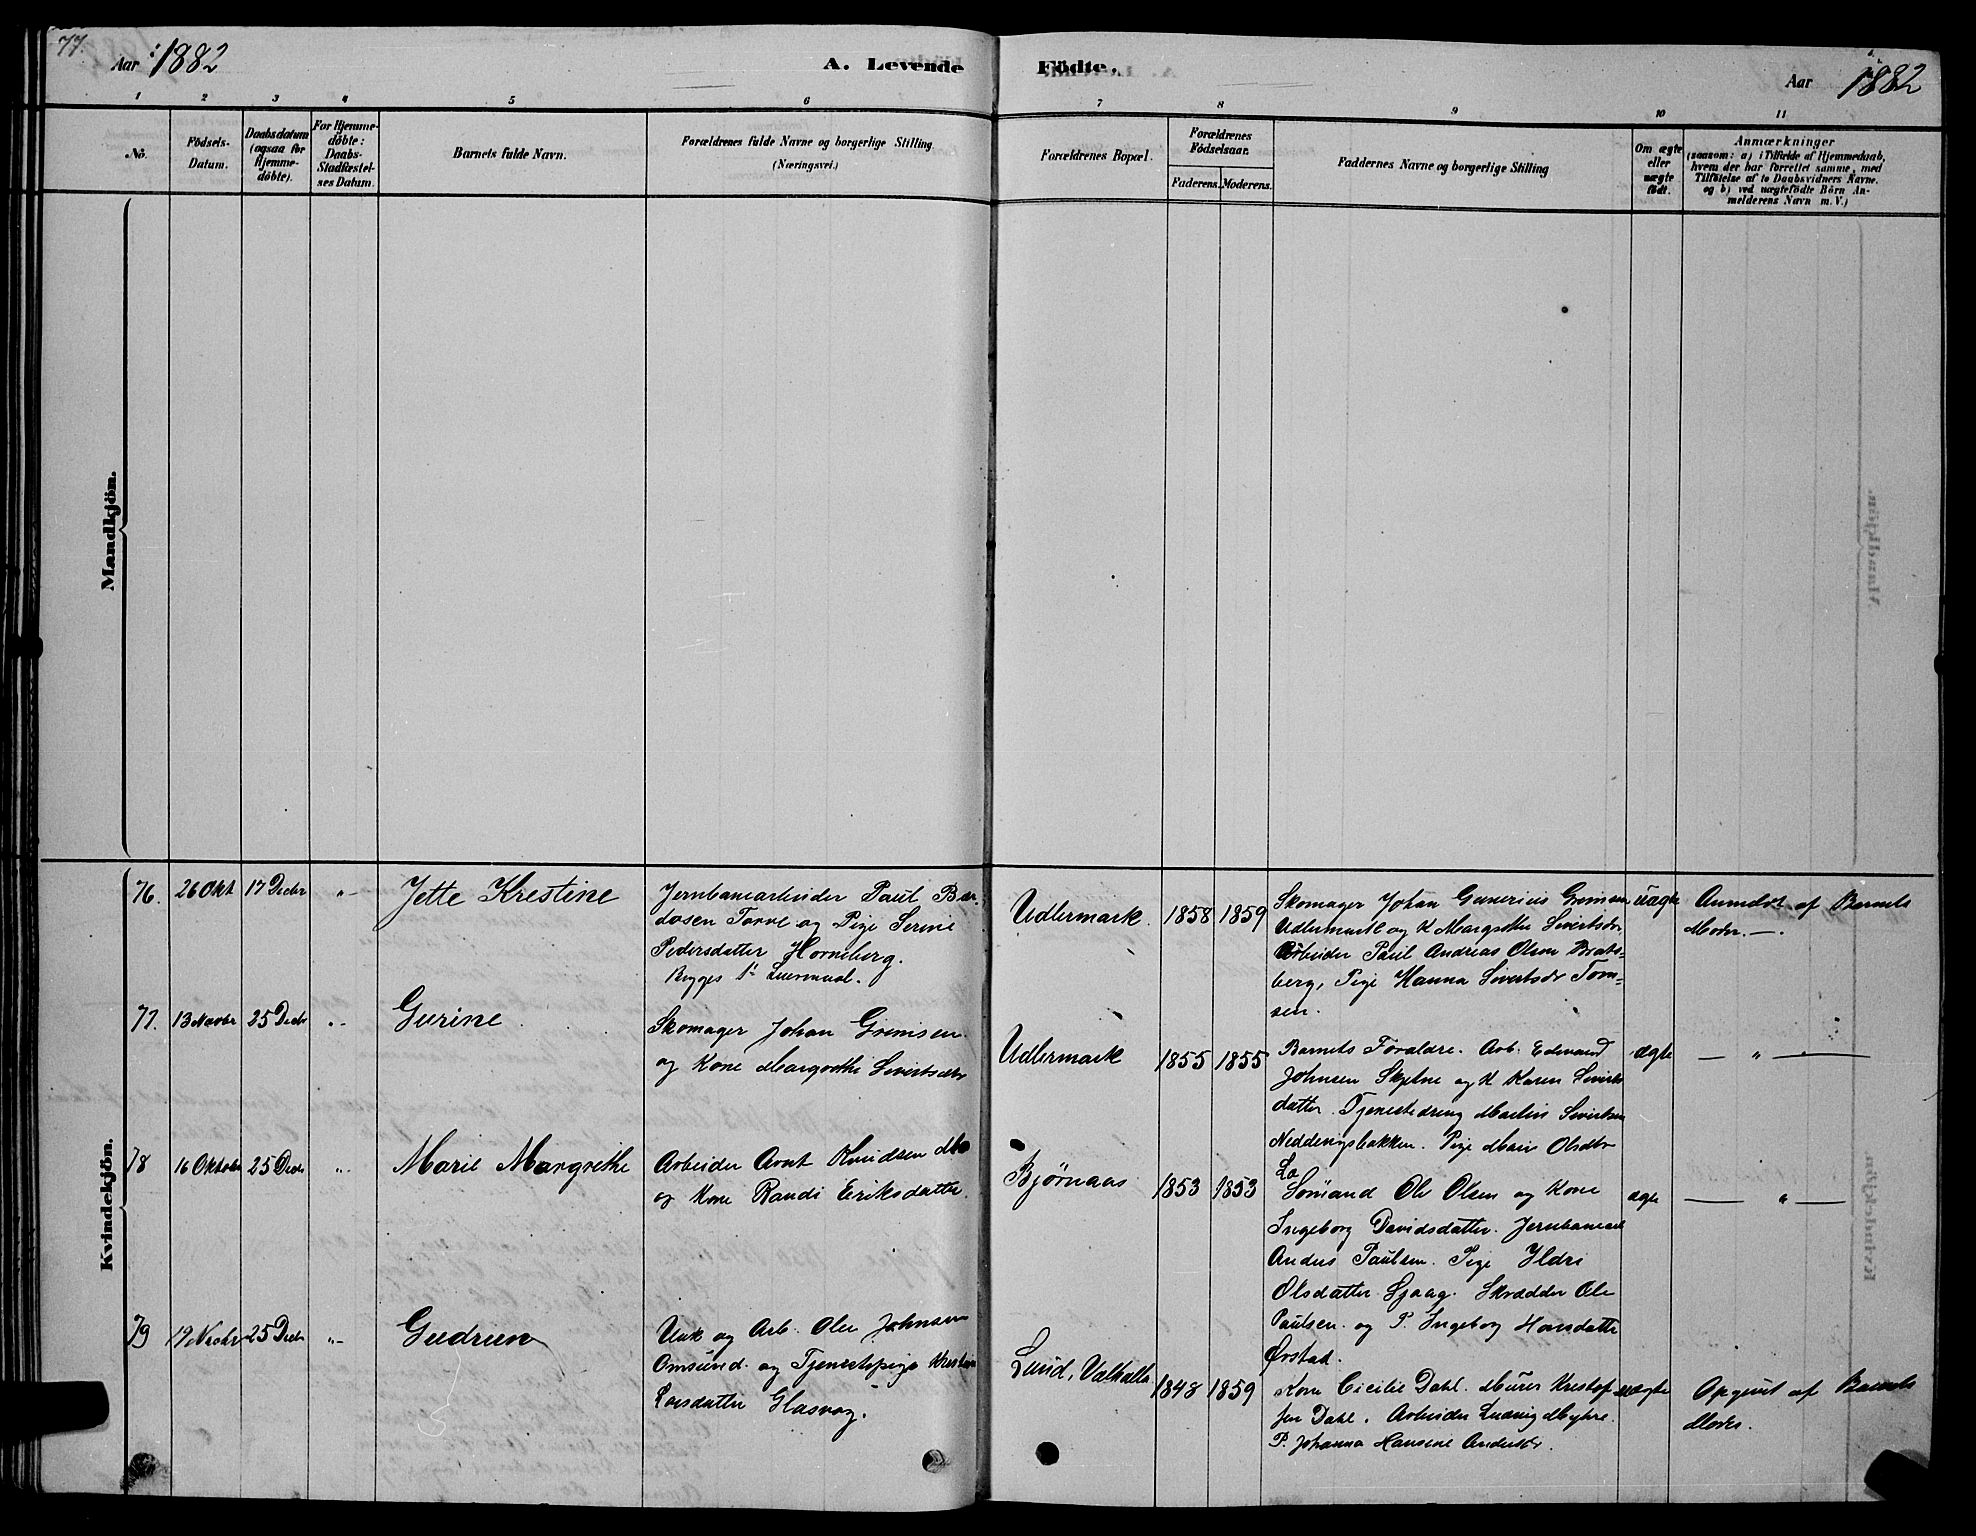 77.
Aar 1882
A. Levende Födte.
Aar 1882
1 2 3 4 5 6 7 8 9 10 11
No.
Födsels-
Datum.
Daabsdatum
(ogsaa for
Hjemme-
döbte).
For Hjemme-
döbte:
Daabs-
Stadfæstel-
ses Datum.
Barnets fulde Navn.
Forældrenes fulde Navne og borgerlige Stilling
(Næringsvei.)
Forældrenes Bopæl.
Forældrenes
Födselsaar.
Faderens. Moderens.
Faddernes Navne og borgerlige Stilling
Om ægte
eller
uægte
födt.
Anmærkninger
(saasom: a) i Tilfælde af Hjemmedaab,
hvem der har forrettet samme, med
Tilföielse af to Daabsvidners Navne.
og b) ved uægtefödte Börn An-
melderens Navn m. V.)
Mandkjön.
Kvindekjön.
76. 26 Okt 17 Decbr " Jette Krestine
Jernbanearbeider Paul
Torve og Pige Serine
Pedersdatter Horneberg.
Udlermark 1858 1859
Skomager Johan Gunerius Grimsen
Udlermark og K Margrethe Sivertsdr.
Arbeider Paul Andreas Olsen Brats-
berg, Pige Hanna Sivertsdr Tom-
sen.
uægte
Anmeldt af Barnets
Moder. —
77. 13 Novbr 25 Decbr " Gurine
Skomager Johan Grimsen
og Kone Margrethe Sivertsdtr
Udlermark 1855 1855
Barnets Forældre. Arb. Edevard
Johnsen Skjelne og K Karen Siverts
datter. Tjenestedreng Martin Sivertsen
Neddengsbakken. Pige Marie Olsdtr
ægte — " —
78 16 Oktober 25 Decbr " Marie Margrethe
Arbeider Arnt Knudsen
og Kone Randi Eriksdatter
Bjørnaas 1853 1853
Sømand Ole Olsen og Kone
Ingeborg Davidsdatter. Jernbanearb
Anders Paulsen. Pige Ildri
Olsdatter Sjaag. Skrædder Ole
Paulsen og P. Ingeborg Hansdatter
Ørstad.
ægte — " —
79 19 Novbr 25 Decbr " Gudrun
Unk og Arb. Ole Johnsen
Omsund og Tjenestepige Kristine
Larsdatter Glasvog.
Lund, Valhalla 1848 1859
Kone Cicilie Dahl. Murer Kristof
fer Dahl. Arbeider Ludvig Myhre.
P. Johanna Hansine Andersdr.
uægte
Opgivet af Barnets
Moder.